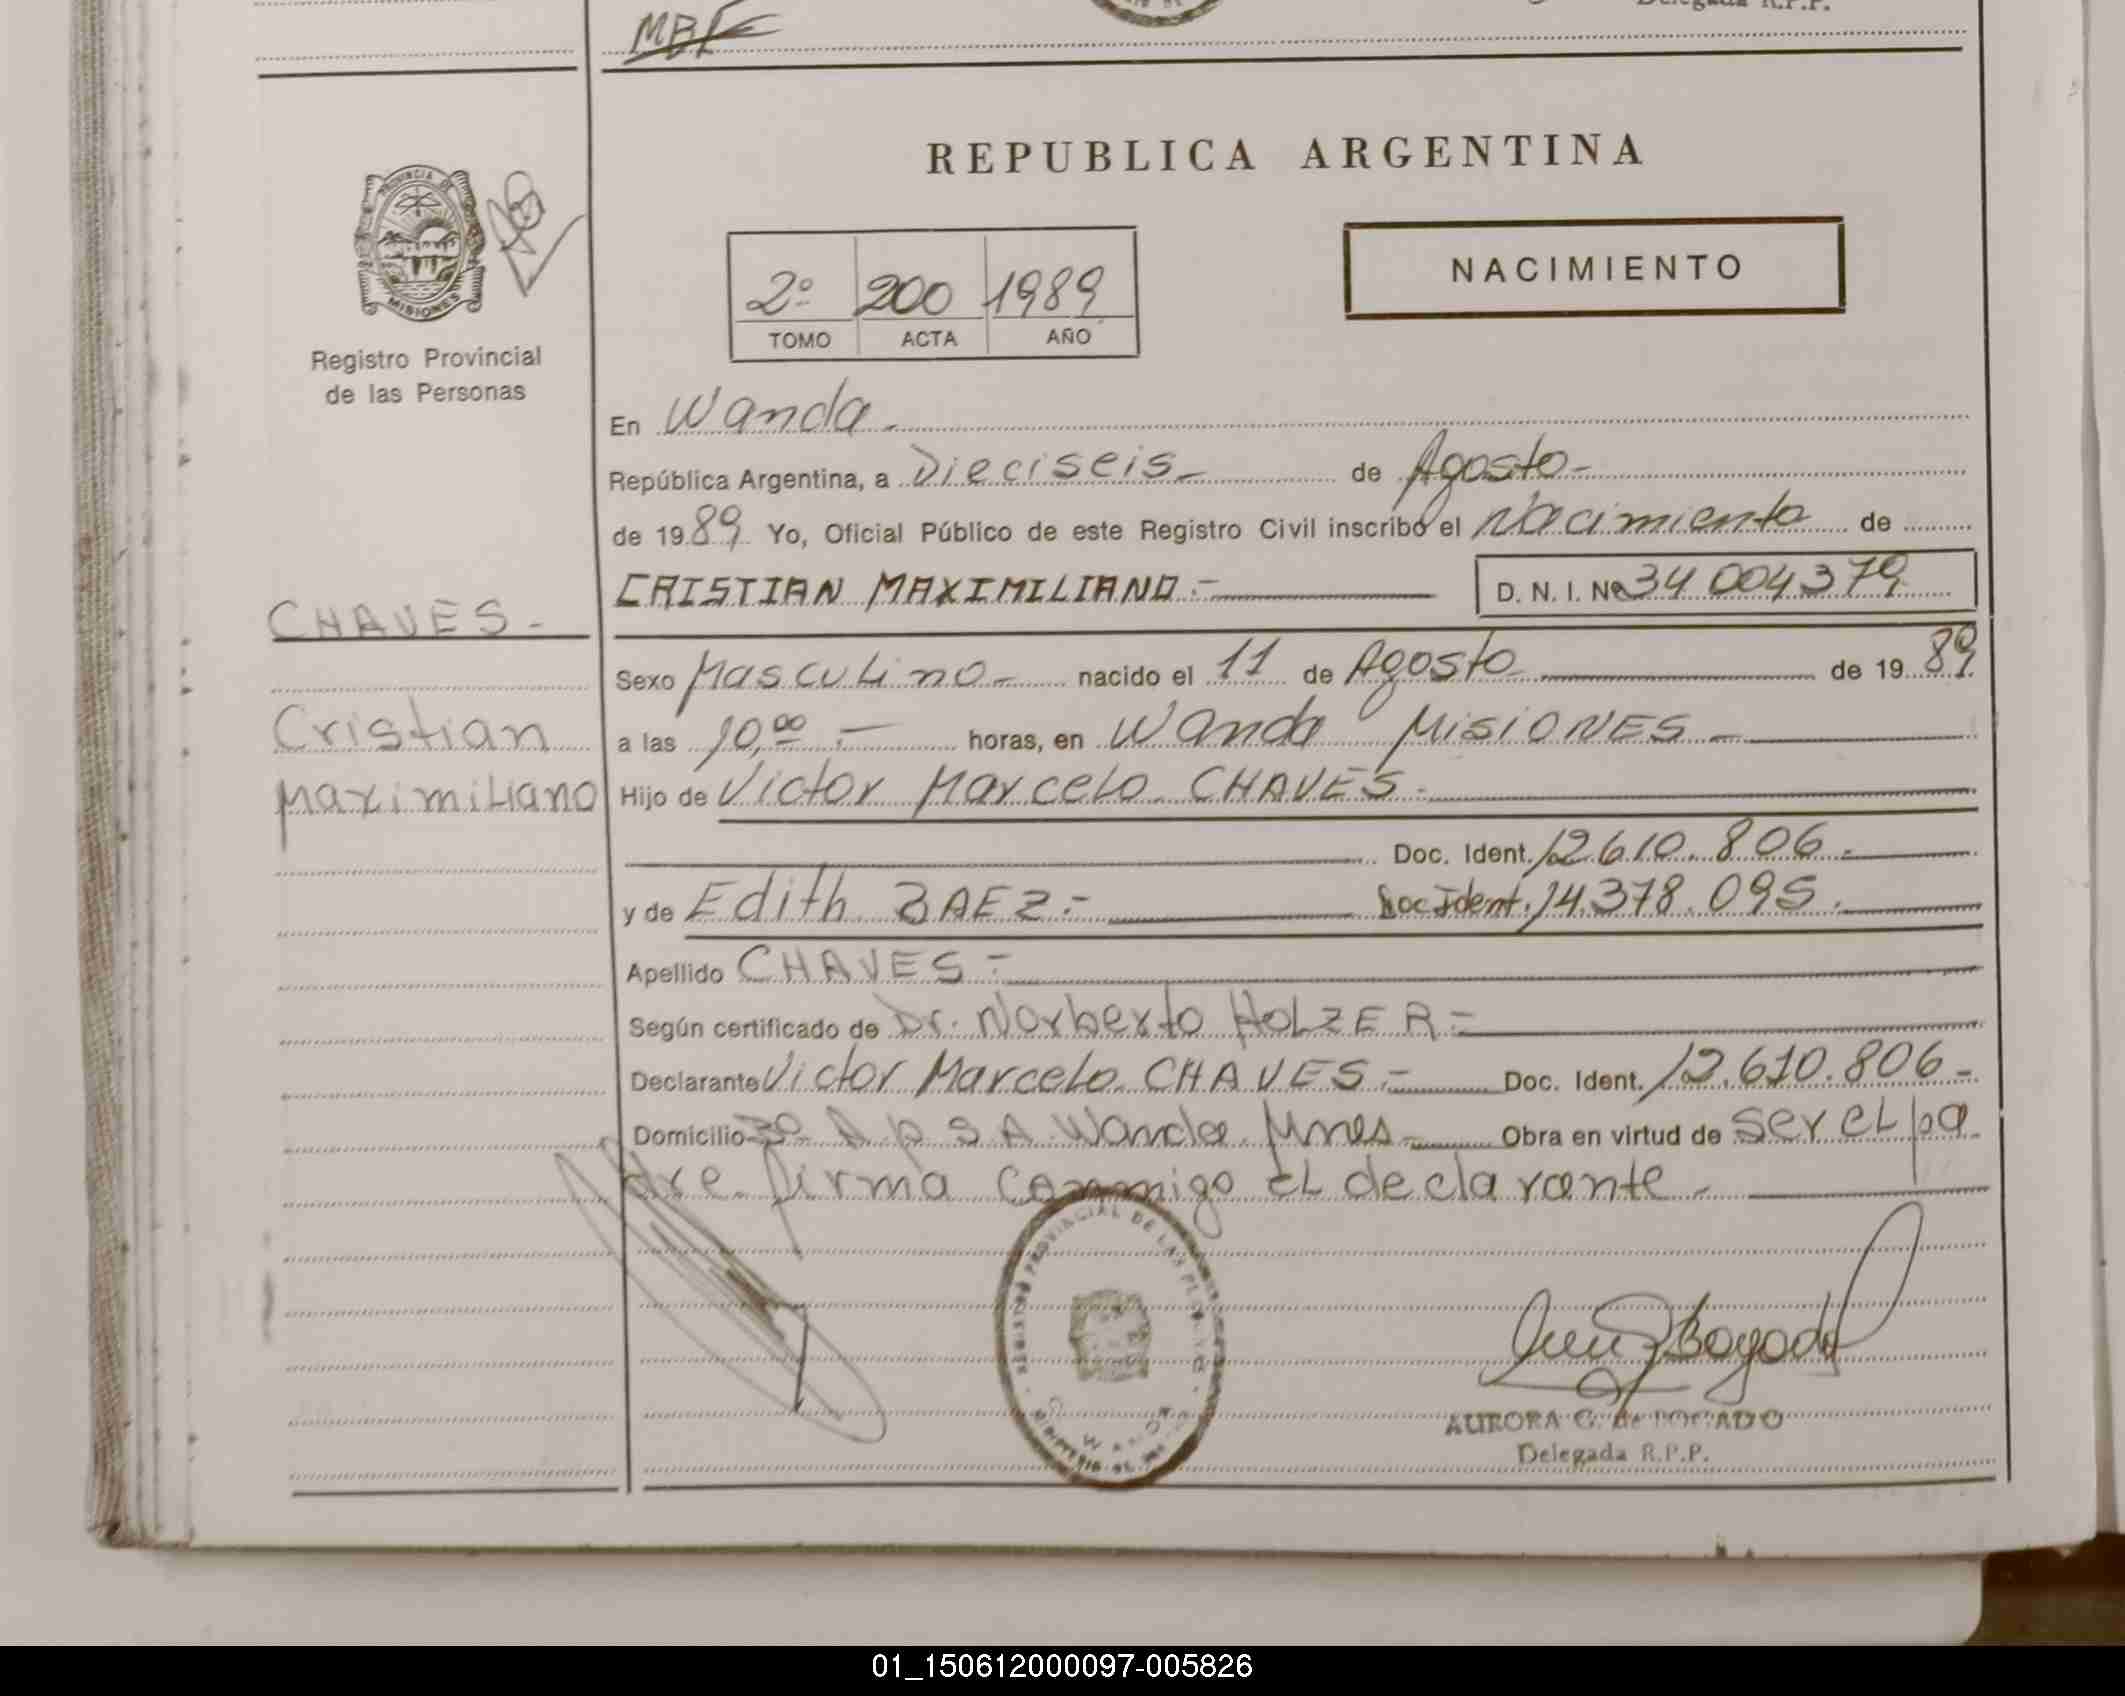 MBF
Delegada R.P.P.
PROVINCIA DE
MISIONES
Registro Provincial
de las Personas
REPUBLICA ARGENTINA
2º 200 1989
TOMO ACTA AÑO
NACIMIENTO
En Wanda.
República Argentina, a Dieciseis- de Agosto-
de 1989 Yo, Oficial Público de este Registro Civil inscribo el Nacimiento de
CRISTIAN MAXIMILIANO.- D. N. I. Nº 34 004379
CHAVES.-
Cristian
Maximiliano
Sexo Masculino- nacido el 11 de Agosto de 1989
a las 10,00.- horas, en Wanda MISIONES-
Hijo de Victor Marcelo CHAVES.
Doc. Ident. 12.610.806.-
y de Edith BAEZ.- Doc Ident. 14.378.095.
Apellido CHAVES-
Según certificado de Dr. Norberto HOLZER-
Declarante Victor Marcelo CHAVES.- Doc. Ident. 12.610.806-
Domicilio A p S A Wanda Mnes- Obra en virtud de ser el pa
dre firma conmigo el declarante-
REGISTRO PROVINCIAL DE LAS
WANDA
AURORA G. de BOGADO
Delegada R.P.P.
01_150612000097-005826